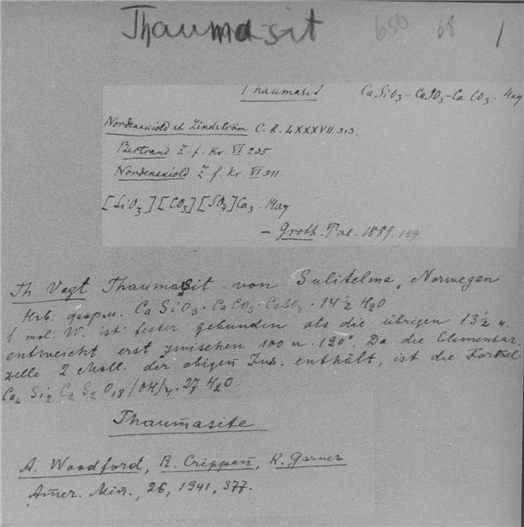 Thaumasit 650 68 1
Thaumasit CaSiO3-CaSO3-CaCO3. 14aq
Nordenskiöld et Lindström C. R. LXXXVII. 313.
Bertrand Z. f. Kr. VI 285
Nordenskiöld Z. f. Kr. VI 311
[SiO3][CO3][SO4]Ca3. 14aq
- Groth. Tab. 1889. 149
Th Vogt Thaumasit von Sulitelma, Norwegen
Нов. форм. CaSiO3·CaCO3·CaSO4·14½ H2O
1 mol. W. ist fester gebunden als die übrigen 13½ u.
entweicht erst zwischen 100 u. 120°. Da die Elementar
zelle 2 Moll. der obigen Zus. enthält, ist die Formel
Si2 C2 S2 O18 (OH)4. 27 H2O.
Thaumasite
A. Woodford, R. Crippen, K. Garner
Amer. Min., 26, 1941, 377.